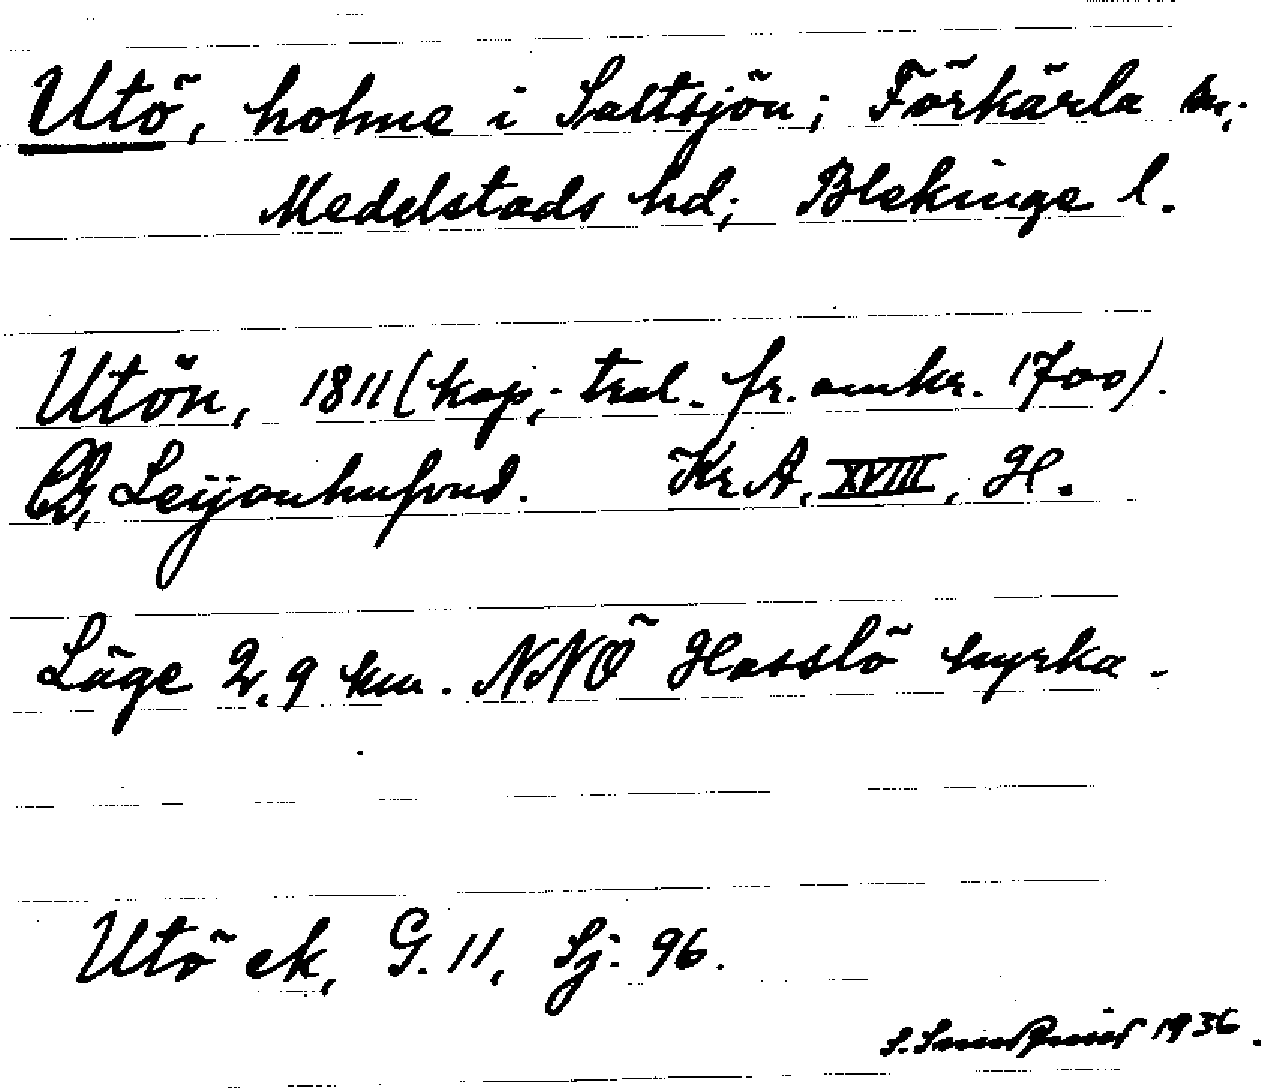 Utö, holme i Saltsjön; Förkärla sn,
Medelstads hd; Blekinge l.
Utön, 1811 (kop,- tral. fr. omkr. 1700).
Leijonhufvud. Kr. A, XVIII, H.
Läge 2,9 km. NNÖ Hasslö kyrka.
Utö ek, G. 11, Sj: 96.
1936.